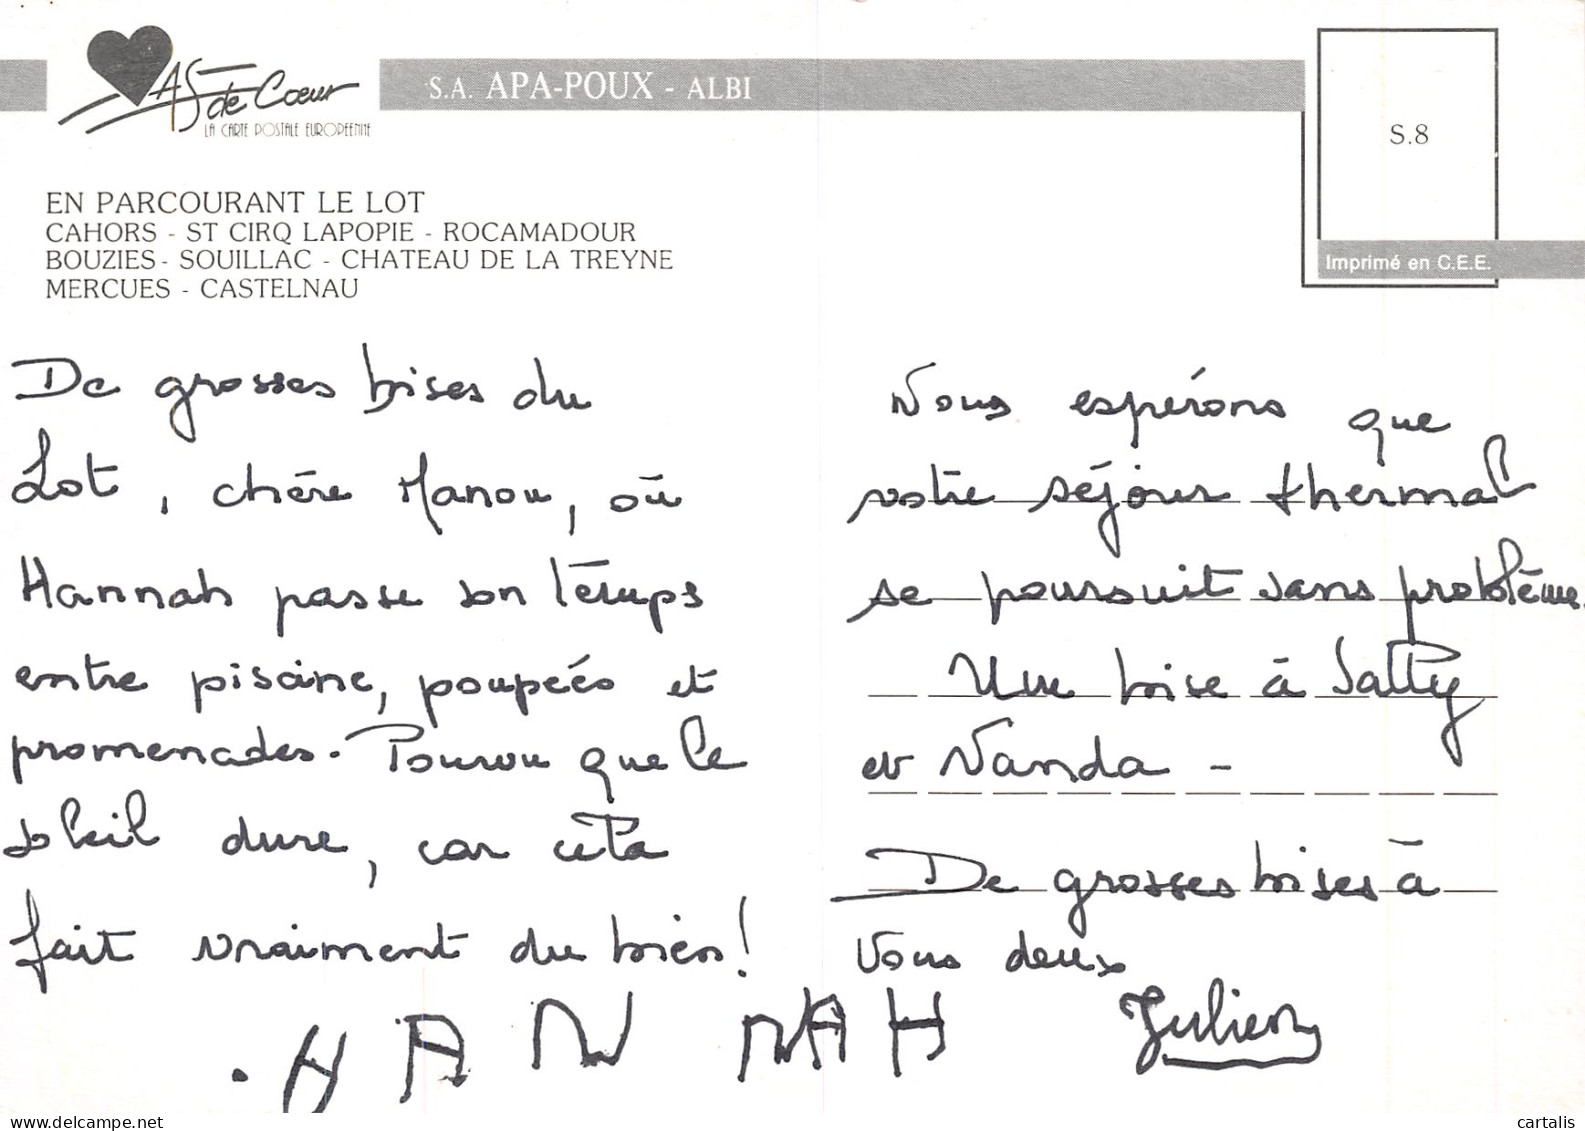 AS de Cœur
LA CARTE POSTALE EUROPEENNE
S.A. APA-POUX - ALBI
S.8
Imprimé en C.E.E.
EN PARCOURANT LE LOT
CAHORS - ST CIRQ LAPOPIE - ROCAMADOUR
BOUZIES - SOUILLAC - CHATEAU DE LA TREYNE
MERCUES - CASTELNAU
De grosses bises du
Lot, chère Manou, où
Hannah passe son temps
entre piscine, poupées et
promenades. Pourvu que le
soleil dure, car cela
fait vraiment du bien !
HANNAH
Nous espérons que
votre séjour thermal
se poursuit sans problème.
Une bise à Satty
et Vanda -
De grosses bises à
Vous deux
Julien
delcampe.net
cartalis